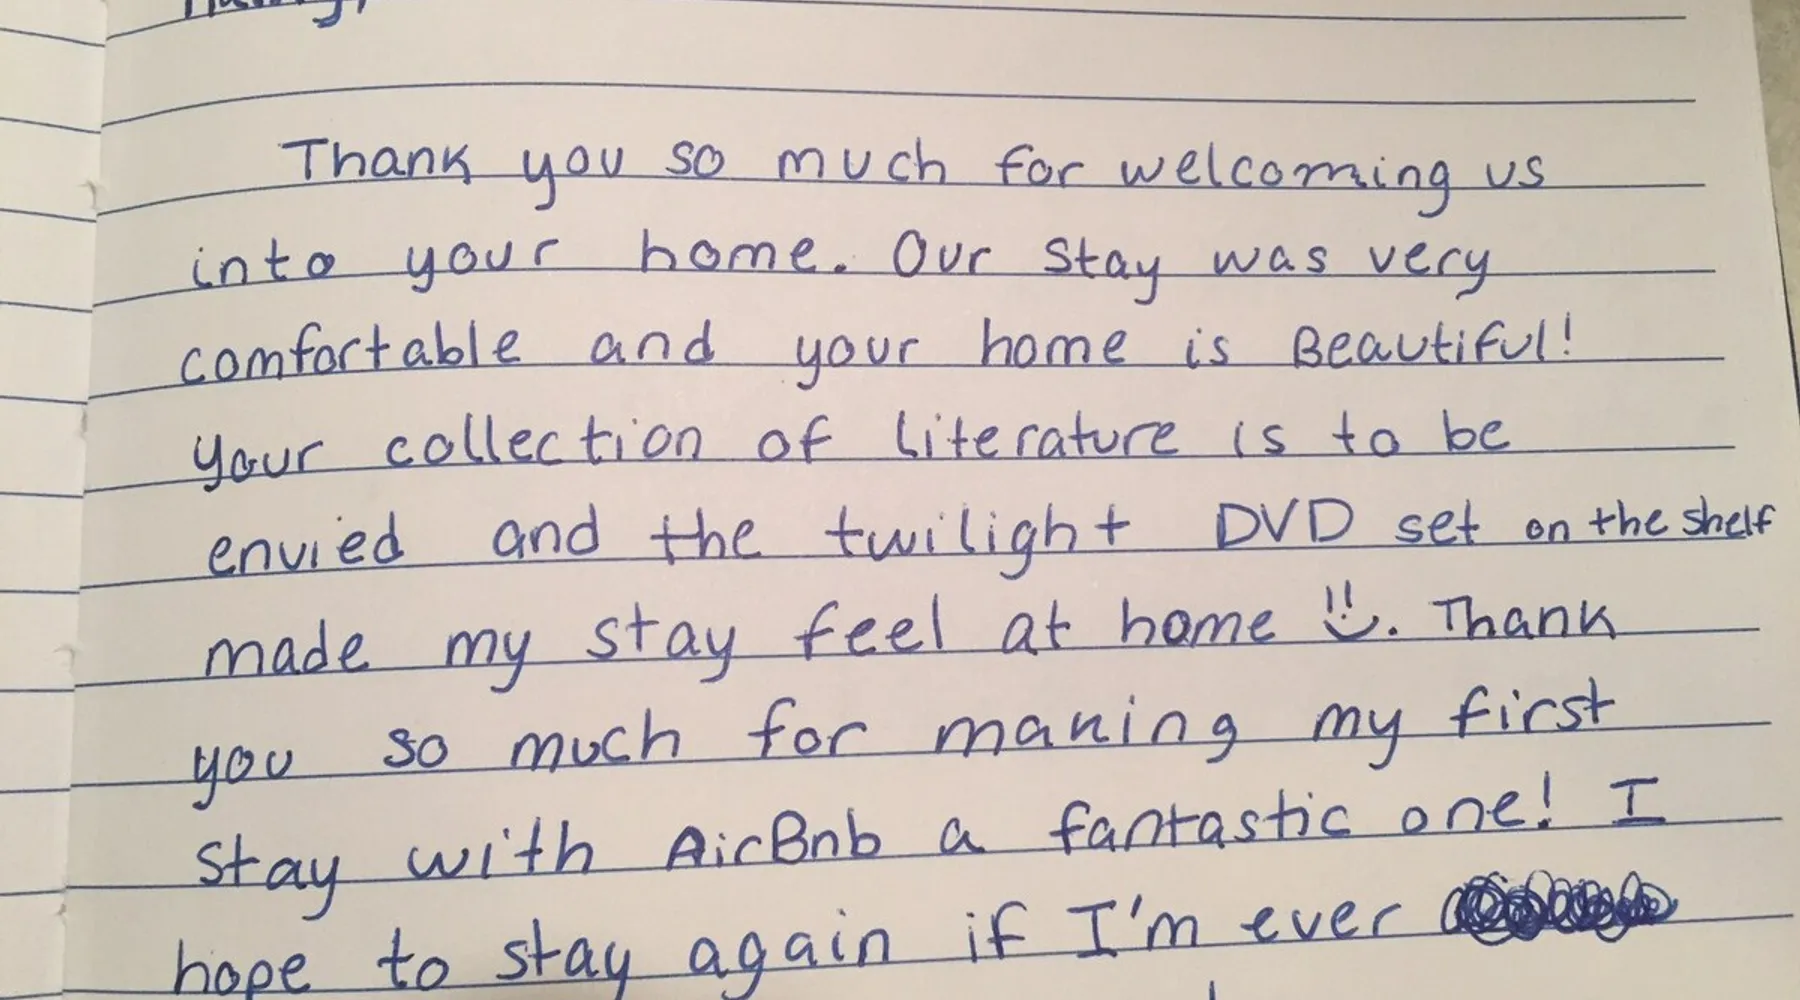 Thank you so much for welcoming us
into your home. Our stay was very
comfortable and your home is Beautiful!
Your collection of literature is to be
envied and the twilight DVD set on the shelf
made my stay feel at home !!. Thank
you so much for making my first
stay with AirBnb a fantastic one! I
hope to stay again if I'm ever